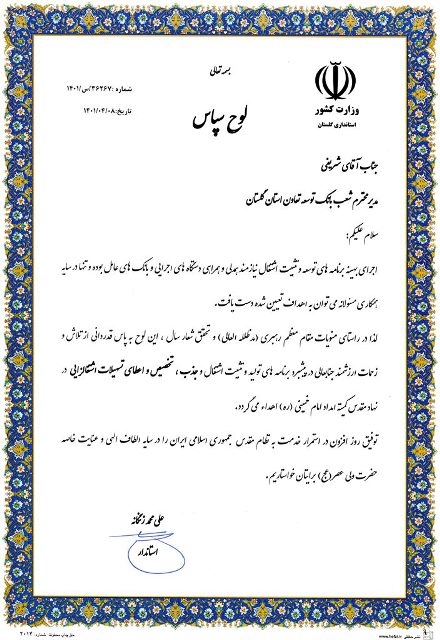 بسمه تعالی
وزارت کشور
استانداری گلستان
شماره :۱۴۰۱/ص/۳۶۲۶۷
تاریخ:۱۴۰۱/۰۴/۰۸
لوح سپاس
جناب آقای شریفی
مدیر محترم شعب بانک توسعه تعاون استان گلستان
سلام علیکم؛
اجرای بهینه برنامه های توسعه و تثبیت اشتغال نیازمند همدلی و همراهی دستگاه های اجرایی و بانک های عامل بوده و تنها در سایه
همکاری مسئولانه می توان به اهداف تعیین شده دست یافت.
لذا در راستای منویات مقام معظم رهبری (مدظله العالی) و تحقق شعار سال ، این لوح به پاس قدردانی از تلاش و
زحمات ارزشمند جنابعالی در پیشبرد برنامه های تولید و تثبیت اشتغال و جذب ، تخصیص و اعطای تسهیلات اشتغالزایی در
نهاد مقدس کمیته امداد امام خمینی (ره) اهداء می گردد.
توفیق روز افزون در استمرار خدمت به نظام مقدس جمهوری اسلامی ایران را در سایه الطاف الهی و عنایت خاصه
حضرت ولی عصر(عج) برایتان خواستاریم.
علی محمد زنگانه
استاندار